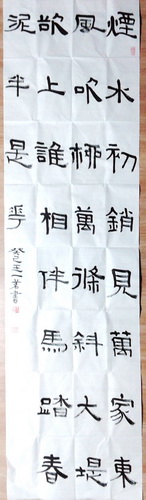 煙水初銷見萬家東
風吹柳萬條斜大堤
欲上誰相伴馬踏春
泥半是花
癸巳